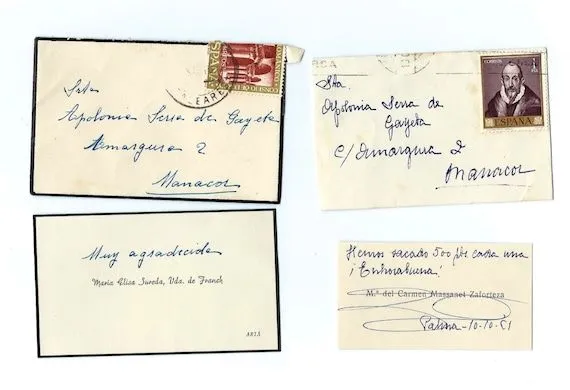 ESPAÑA
Srta
Apolonia Serra de Gayeta
Amargura 2
Manacor
CORREOS
1 PTA
ESPAÑA
Srta
Apolonia Serra de
Gayeta
C/ Amargura 2
Manacor
Muy agradecida
Maria Elisa Sureda, Vda. de Franch
ARTÁ
Hemos sacado 500 pts cada una
¡Enhorabuena!
M.ª del Carmen Massanet Zaforteza
Palma-10-10-61